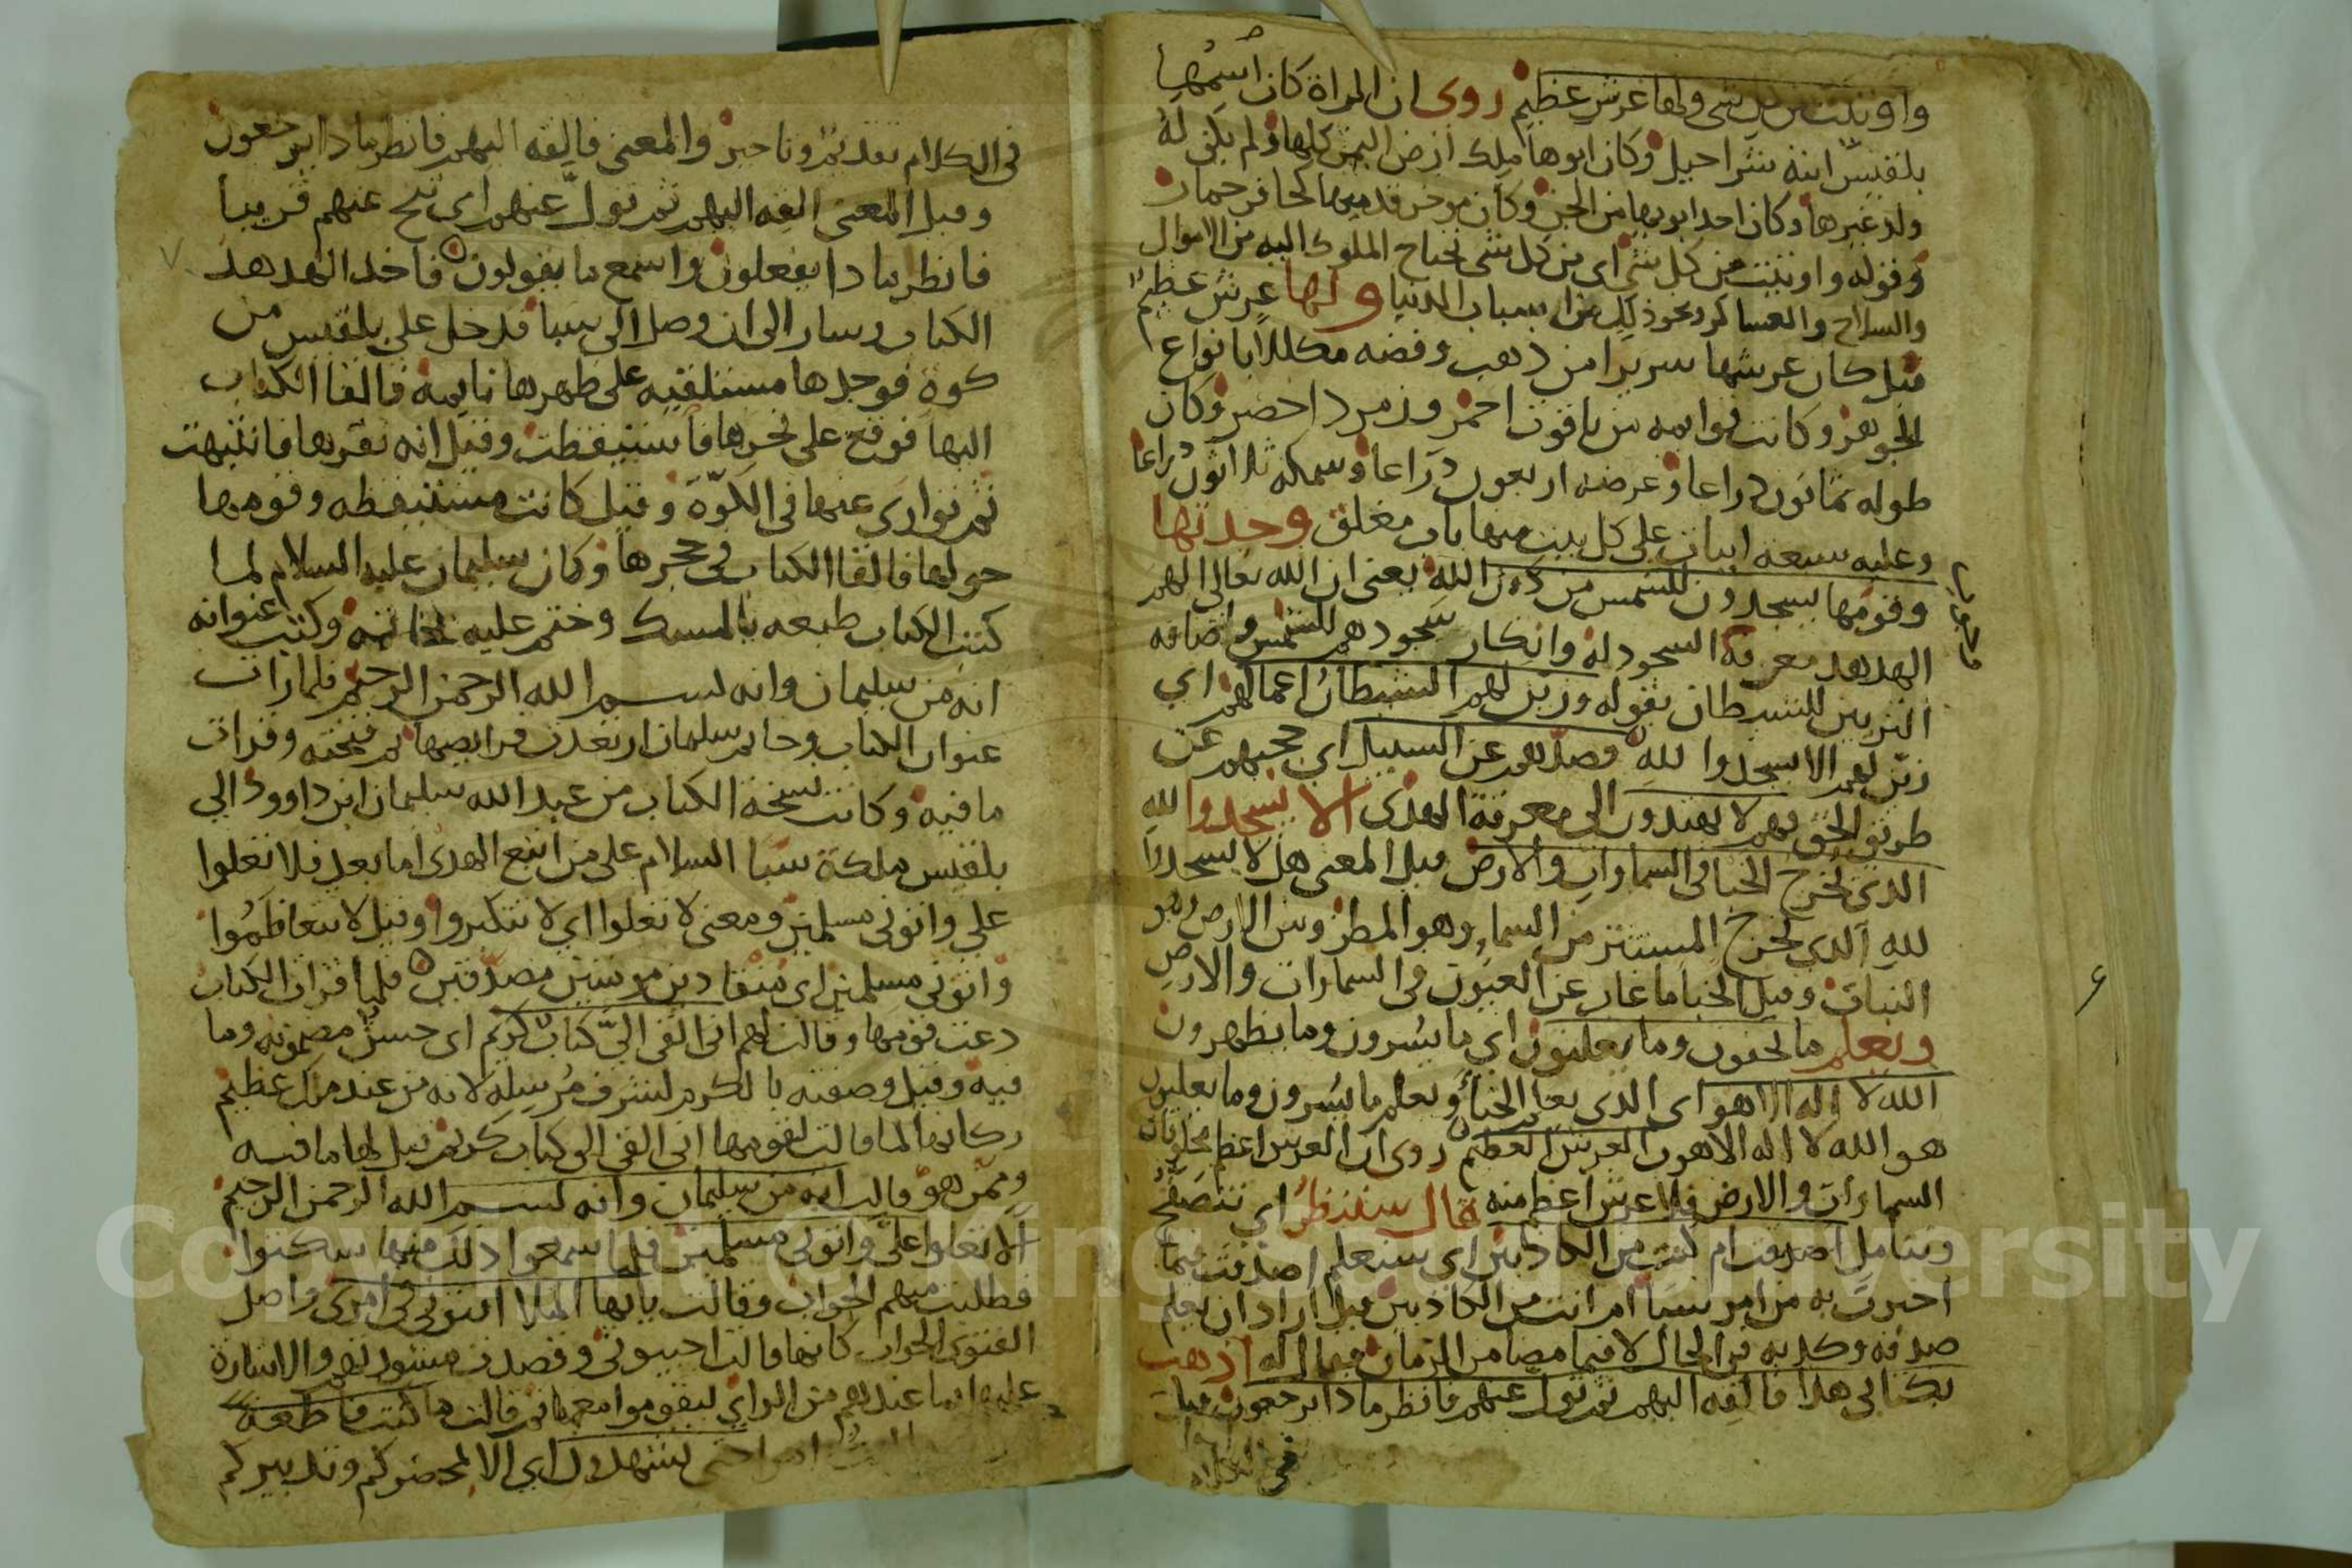 واوتيت من كل شى ولها عرش عظيم روى ان المراة كان اسمها
بلقيس ابنة شراحيل وكان ابوها ملك ارض اليمن كلها ولم يكن له
ولد غيرها وكان احد ابويها من الجن وكان موخر قدميها كحافر حمار
وقوله واوتيت من كل شى اى من كل شى تحتاج الملوك اليه من الاموال
والسلاح والعساكر ونحو ذلك من اسباب الدنيا ولها عرش عظيم
قيل كان عرشها سريرا من ذهب وفضه مكللا بانواع
الجوهر وكانت قوايمه من ياقوت احمر وزمرد اخضر وكان
طوله ثمانون ذراعا وعرضه اربعون ذراعا وسمكه ثلاثون ذراعا
وعليه سبعه ابيات على كل بيت منها باب مغلق وجدتها
وقومها يسجدون للشمس من دون الله يعنى ان الله تعالى الهم
الهدهد معرفة السجود له وانكار سجودهم للشمس واضافه
التزيين للشيطان بقوله وزين لهم الشيطان اعمالهم اي
زين لهم الا يسجدوا لله فصدهم عن السبيل اي حجبهم عن
طريق الحق فهم لا يهتدون الى معرفة الهدى الا يسجدوا لله
الذى يخرج الخبا فى السماوات والارض قيل المعنى هل لا يسجدوا
لله الذى يخرج المستتر من السما وهو المطر ومن الارض وهو
النبات وقيل الخبا ما غاب عن العيون فى السماوات والارض
ويعلم ما تخفون وما يعلنون اي ما يسرون وما يظهرون
الله لا اله الا هو اى الذى يعلم الخبا ويعلم ما يسرون وما يعلنون
هو الله لا اله الا هو رب العرش العظيم روى ان العرش اعظم مخلوقات
السماوات والارض فلا عرش اعظم منه قال سننظر اي نتصفح
ونتامل اصدقت ام كنت من الكاذبين اى سنعلم اصدقت فيما
اخبرت به من امر سبا ام انت من الكاذبين قيل اراد ان يعلم
صدقه وكذبه فى الحال لا فيما مضا من الزمان فقال له اذهب
بكتابى هذا فالقه اليهم ثم تول عنهم فانظر ماذا يرجعون قيل
فى الكلام
فى الكلام تقديم وتاخير والمعنى فالقه اليهم فانظر ماذا يرجعون
وقيل المعنى القه اليهم ثم تول عنهم اى تنح عنهم قريبا
فانظر ماذا يفعلون واسمع ما يقولون فاخذ الهدهد
الكتاب وسار الى ان وصل الى سبا فدخل على بلقيس من
كوة فوجدها مستلقيه على ظهرها نايمه فالقا الكتاب
اليها فوقع على نحرها فاستيقظت وقيل انه نقرها فانتبهت
ثم توارى عنها فى الكوة وقيل كانت مستيقظه وقومها
حولها فالقا الكتاب فى حجرها وكان سليمان عليه السلام لما
كتب الكتاب طبعه بالمسك وختم عليه بخاتمه وكتب عنوانه
انه من سليمان وانه بسم الله الرحمن الرحيم فلما رات
عنوان الكتاب وخاتم سليمان ارتعدت فرايصها ثم فتحته وقرات
ما فيه وكانت نسخة الكتاب من عبد الله سليمان ابن داوود الى
بلقيس ملكة سبا السلام على من اتبع الهدى اما بعد فلا تعلوا
علي واتونى مسلمين ومعنى لا تعلوا اي لا تتكبروا وقيل لا تتعاظموا
واتونى مسلمين اى منقادين مومنين مصدقين فلما قرات الكتاب
دعت قومها وقالت لهم انى القى الي كتاب كريم اى حسن مضمونه وما
فيه وقيل وصفته بالكرم لشرف مرسله لانه من عند ملك عظيم
وكانها لما قالت لقومها انى القى الى كتاب كريم قيل لها ما فيه
وممن هو قالت انه من سليمان وانه بسم الله الرحمن الرحيم
الا تعلوا علي واتونى مسلمين فلما سمعوا ذلك منها سكتوا
فطلبت منهم الجواب وقالت يايها الملا افتونى فى امرى واصل
الفتوى الجواب كانها قالت اجيبونى وقصدت مشورتهم والاشارة
عليها بما عندهم من الراي ليقوموا معها ثم قالت ما كنت قاطعة
امرا حتى تشهدون اي الا بمحضركم وتدبيركم